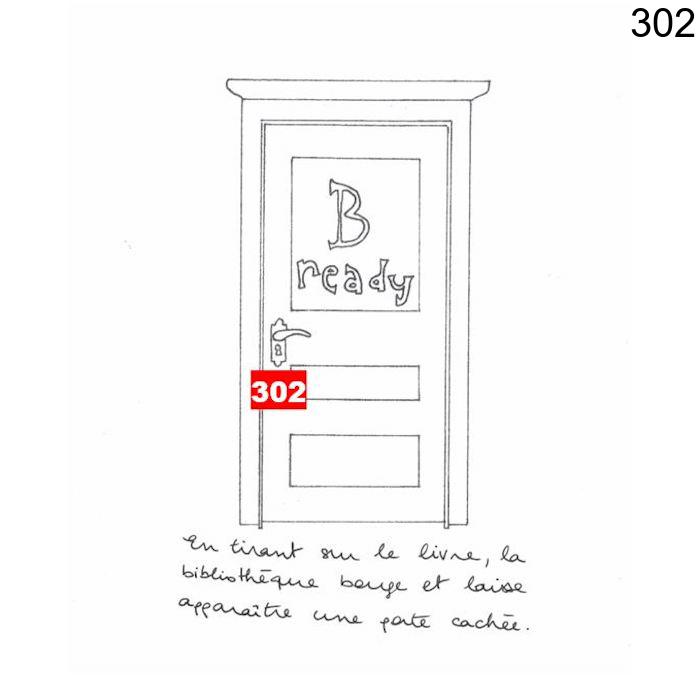 302
B
ready
302
En tirant sur le livre, la
bibliothèque bouge et laisse
apparaître une porte cachée.